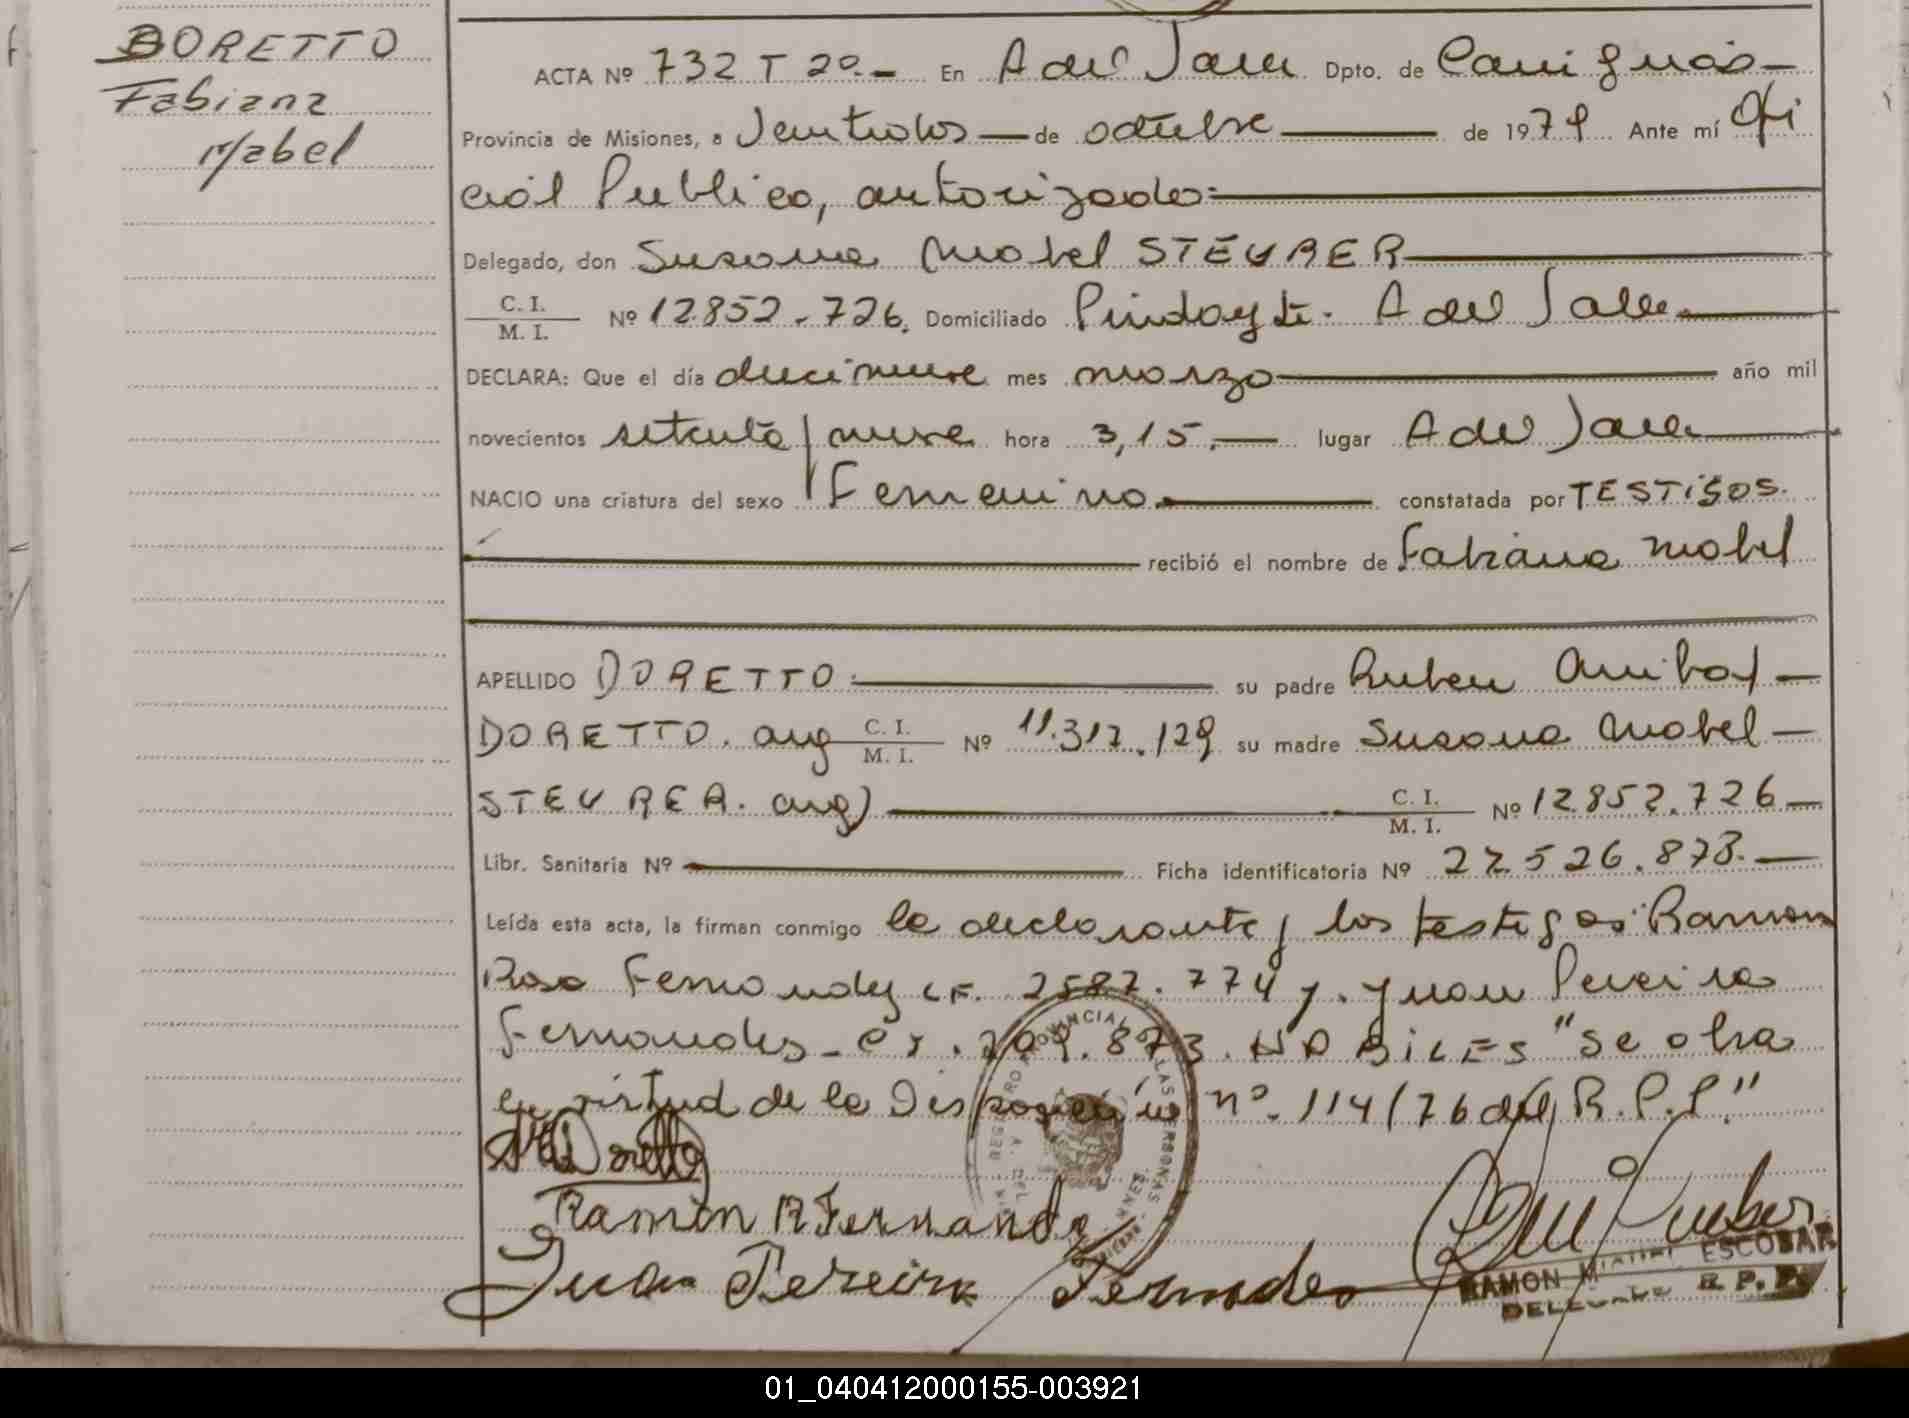 DORETTO
Fabiana
Mabel
ACTA Nº 732 T 2º.- En A del Valle Dpto. de Cainguás
Provincia de Misiones, a Veintidos de octubre de 1979 Ante mí Ofi
cial Publico, autorizado:
Delegado, don Susana Mabel STEURER
C. I.
M. I. Nº 12.852.726. Domiciliado Pindayti. A del Valle
DECLARA: Que el día diecinueve mes marzo año mil
novecientos setenta y nueve hora 3,15.- lugar A del Valle
NACIO una criatura del sexo Femenino constatada por TESTIGOS.
recibió el nombre de Fabiana Mabel
APELLIDO DORETTO su padre Ruben Anibal
DORETTO. arg C. I. M. I. Nº 11.317.129 su madre Susana Mabel
STEURER. arg) C. I. M. I. Nº 12.852.726
Libr. Sanitaria Nº Ficha identificatoria Nº 27.526.873.
Leída esta acta, la firman conmigo la declarante y los testigos: Ramon
Rosa Fernandez 2587.774 y. Juan Pereira
Fernandes - 873. HABILES "Se obra
en virtud de la Disposición nº. 114/76 del R.P.P."
Doretto
Ramón R Fernandez
Juan Pereira Fernandes
REGISTRO PROVINCIAL DE LAS PERSONAS
RAMON ESCOBAR
DELEGADO R. P. P.
01_040412000155-003921